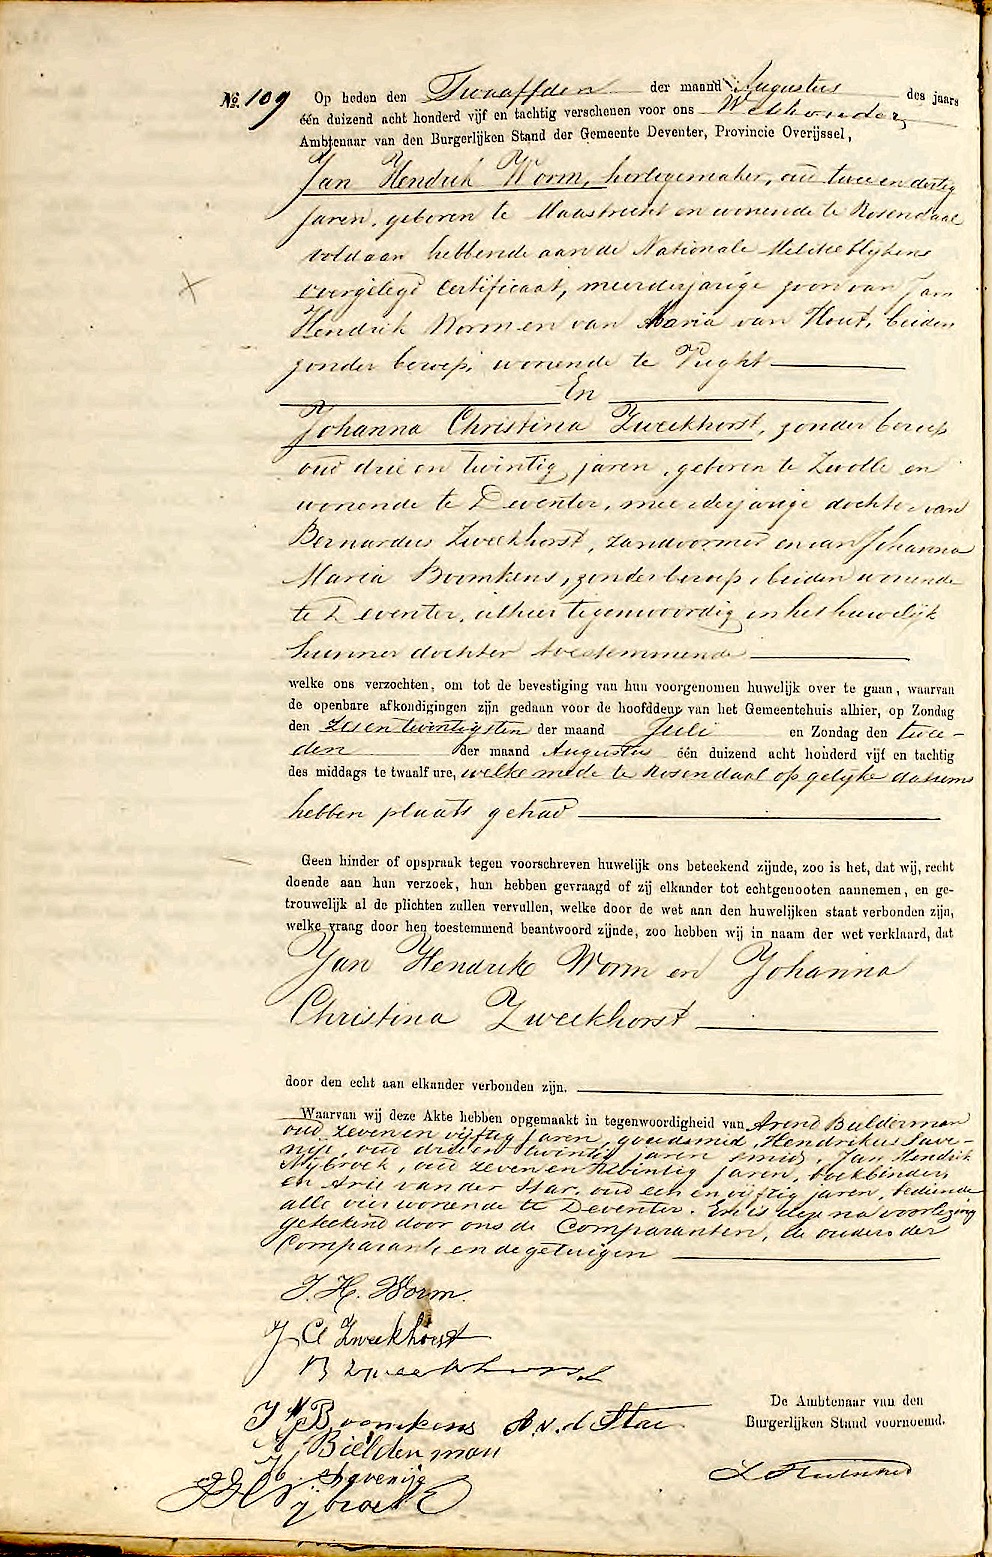 No. 109 Op heden den Twaalfden der maand Augustus des jaars
één duizend acht honderd vijf en tachtig verschenen voor ons Wethouder,
Ambtenaar van den Burgerlijken Stand der Gemeente Deventer, Provincie Overijssel,
Jan Hendrik Worm, horlogemaker, oud twee en dertig
jaren, geboren te Maastricht en wonende te Rosendaal
voldaan hebbende aan de Nationale Militie blijkens
overgelegd certificaat, meerderjarige zoon van Jan
Hendrik Worm en van Maria van Hout, beiden
zonder beroep, wonende te Vught
En
Johanna Christina Zweekhorst, zonder beroep
oud drie en twintig jaren, geboren te Zwolle en
wonende te Deventer, meerderjarige dochter van
Bernardus Zweekhorst, zandvormer en van Johanna
Maria Boomkens, zonder beroep, beiden wonende
te Deventer, alhier tegenwoordig en het huwelijk
hunner dochter toestemmende
welke ons verzochten, om tot de bevestiging van hun voorgenomen huwelijk over te gaan, waarvan
de openbare afkondigingen zijn gedaan voor de hoofddeur van het Gemeentehuis alhier, op Zondag
den zesentwintigsten der maand Juli en Zondag den twee-
den der maand Augustus één duizend acht honderd vijf en tachtig
des middags te twaalf ure, welke mede te Rosendaal op gelijke datums
hebben plaats gehad
Geen hinder of opspraak tegen voorschreven huwelijk ons beteekend zijnde, zoo is het, dat wij, recht
doende aan hun verzoek, hun hebben gevraagd of zij elkander tot echtgenooten aannemen, en ge-
trouwelijk al de plichten zullen vervullen, welke door de wet aan den huwelijken staat verbonden zijn,
welke vraag door hen toestemmend beantwoord zijnde, zoo hebben wij in naam der wet verklaard, dat
Jan Hendrik Worm en Johanna
Christina Zweekhorst
door den echt aan elkander verbonden zijn.
Waarvan wij deze Akte hebben opgemaakt in tegenwoordigheid van Arend Bielderman
oud zeven en vijftig jaren, goudsmid, Hendrikus Save-
nije, oud drie en twintig jaren smid, Jan Hendrik
Nijbroek, oud zeven en twintig jaren, boekbinder,
en Arie van der Star, oud een en vijftig jaren, bediende
alle vier wonende te Deventer. En is deze na voorlezing
geteekend door ons de Comparanten, de ouders der
Comparante en de getuigen
J. H. Worm.
J C Zweekhorst
B Zweekhorst
J M Boomkens A. v. d. Star
A Bielderman
H. Savenije
J H Nijbroek
De Ambtenaar van den
Burgerlijken Stand voornoemd.